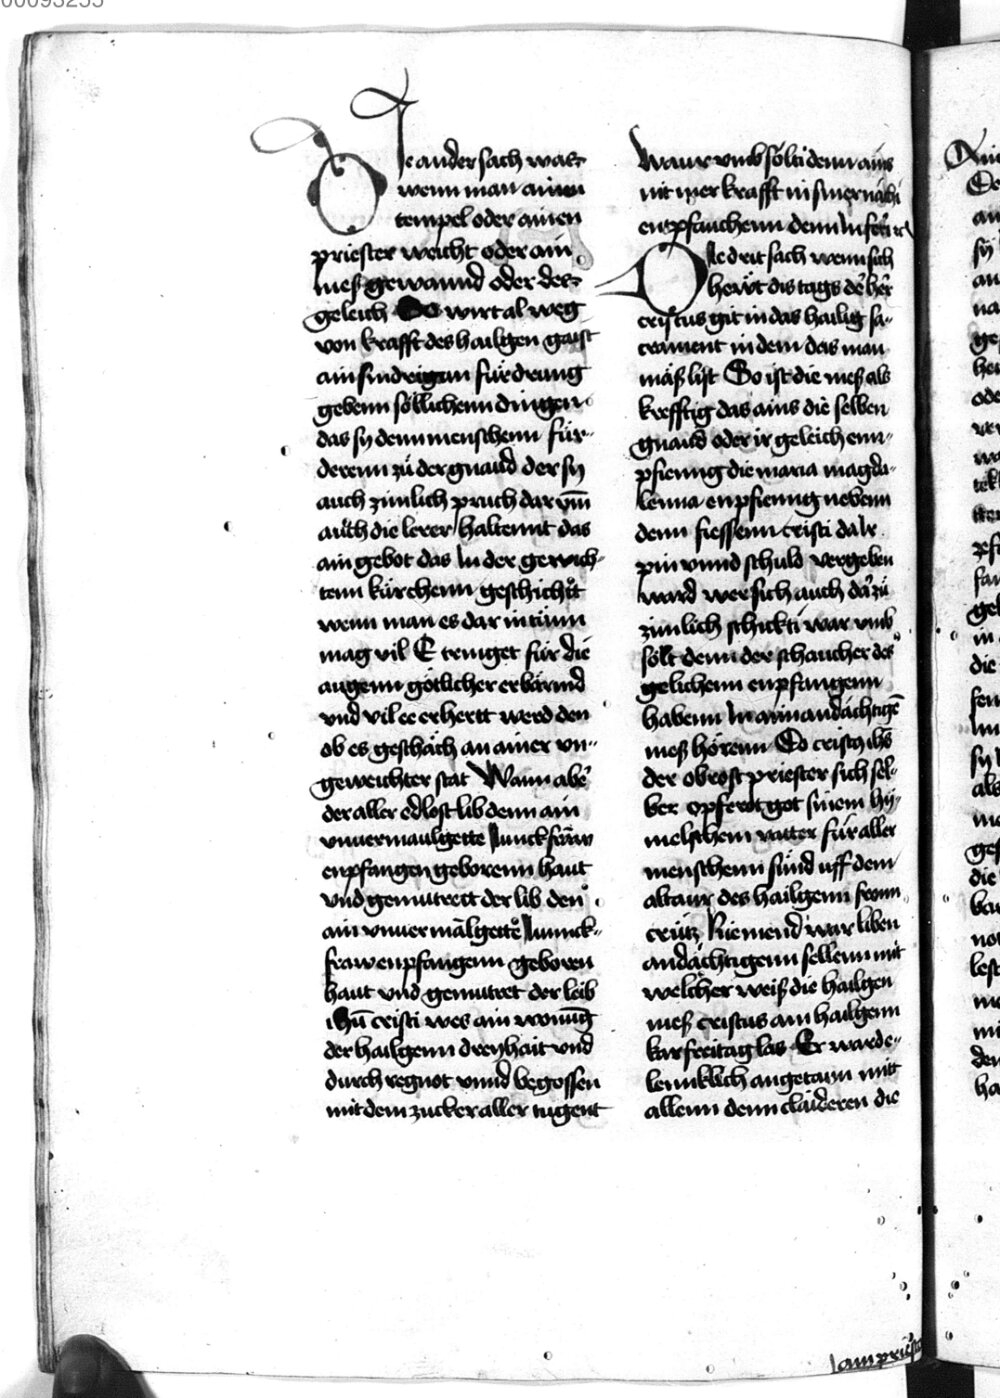 00095255
Die ander sach was
wenn man ainen
tempel oder ainen
priester weicht oder ain
mesßgewannd oder des
geleich So wirt al weg
von krafft des hailgen gaist
ain sundrigun fürdrung
gebenn söllichenn dingen
das sy denn menschenn für-
derenn zů der gnaud der sy
auch zimlich pruch dar vm̄
auch die lerer haltennt das
ain gebot das In der gewich-
tenn kürchenn geschicht
wenn man es dar in tůnn
mag vil E tringet für die
augenn götlicher erbärmd
vnd vil ee erhertt werd den
ob es geschäch an ainer vn-
geweichter stat Wann aber
der aller edlost lib denn ain
vnuermaulgette Junckfraw
enpfangen geborenn haut
vnd gemutrett der lib den
ain vnuermälgette Junnck-
fraw enpfangenn geboren
haut vnd gemutret der leib
ihū cristi wes ain wonūg
der hailgenn dreyhait vnd
durch regnot vnnd begossen
mit dem zucker aller tugent
Warumb sölti denn ains
nit mer krafft in siner nächi
enpfauchenn denn In ferr
Die drit sach wenn sich
herwt dis tags der her
cristus git in das hailig sa-
crament in dem das man
mäß list So ist die meß als
krefftig das ains die selben
gnaud oder ir geleich enn-
pfienng die maria magda-
lenna enpfienng nebenn
denn fiessenn cristi da Ir
pin vnnd schuld vergeben
ward wer sich auch dar zů
zimlich schickti war vmb
sölt denn der schaucher des
gelichenn enpfangenn
habenn In ainn andächtigē
meß hörenn So cristus ihs
der obrost priester sich sel-
ber opferot got sinem hy-
melschenn vatter für aller
menschenn sünd uff dem
altaur des hailgenn fronn
crütz Niemend war liben
andächtigenn sellenn mit
welcher weiß die hailgen
meß cristus am hailgenn
karfreitag las Er warde-
lennklich angetaun mitt
allenn denn claideren die